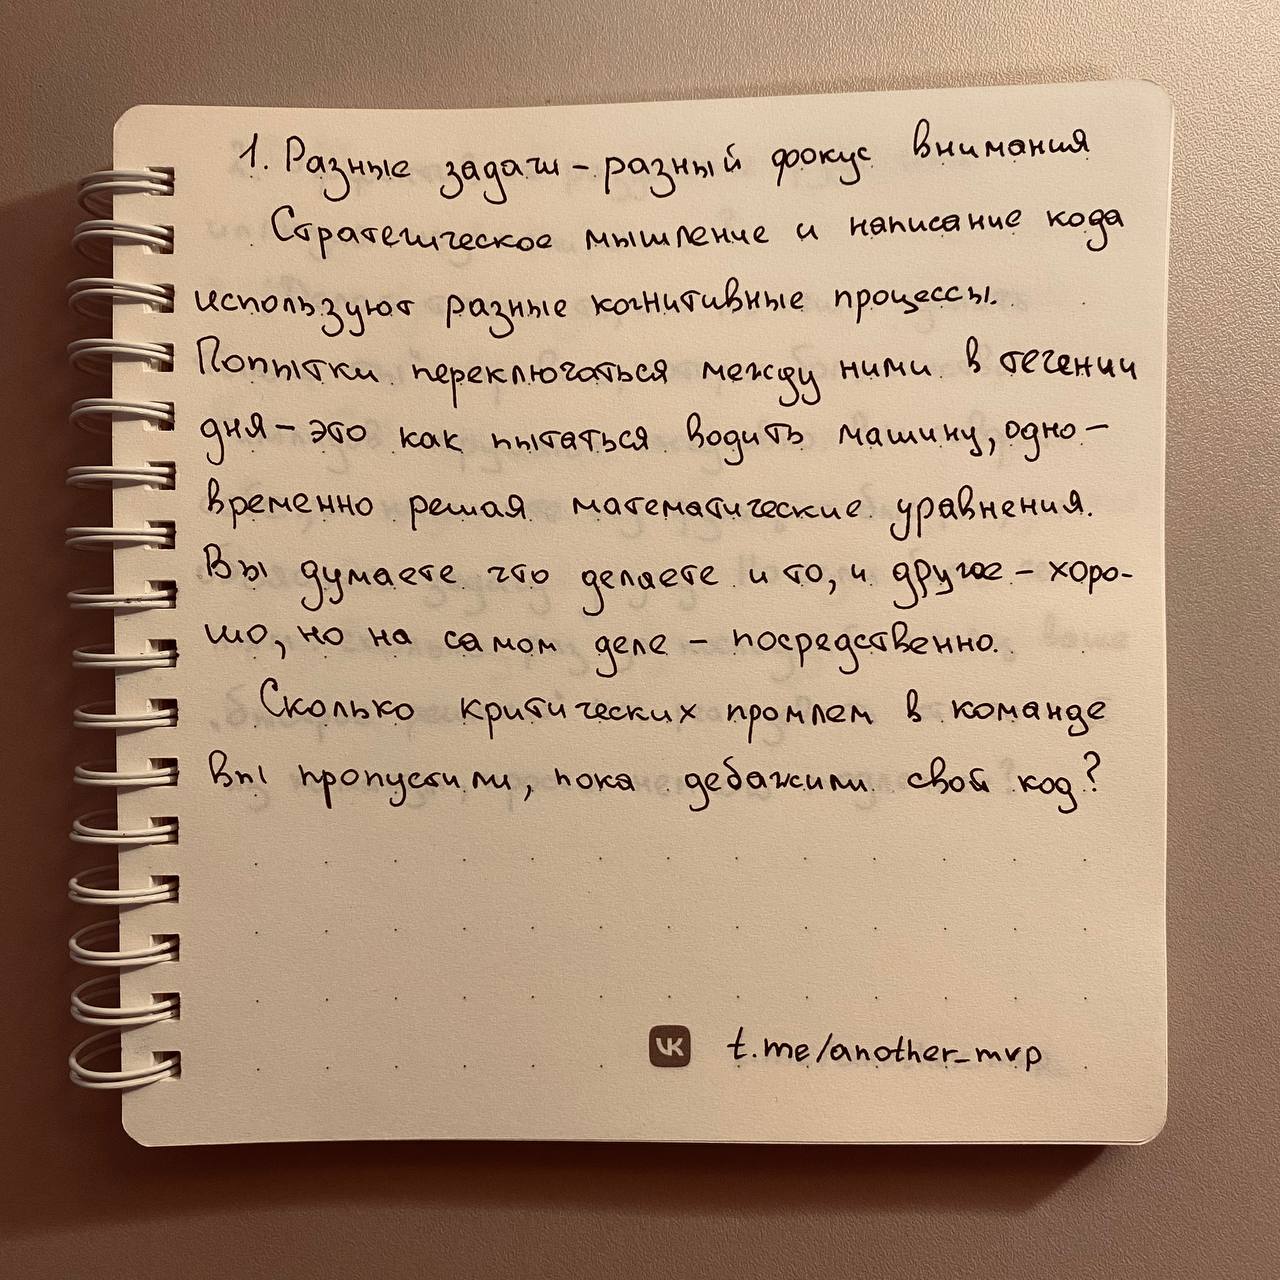 1. Разные задачи - разный фокус внимания
Стратегическое мышление и написание кода
используют разные когнитивные процессы.
Попытки переключаться между ними в течении
дня - это как пытаться водить машину, одно-
временно решая математические уравнения.
Вы думаете что делаете и то, и другое - хоро-
шо, но на самом деле - посредственно.
Сколько критических промлем в команде
вы пропустили, пока дебажили свой код?
VK t.me/another_mvp